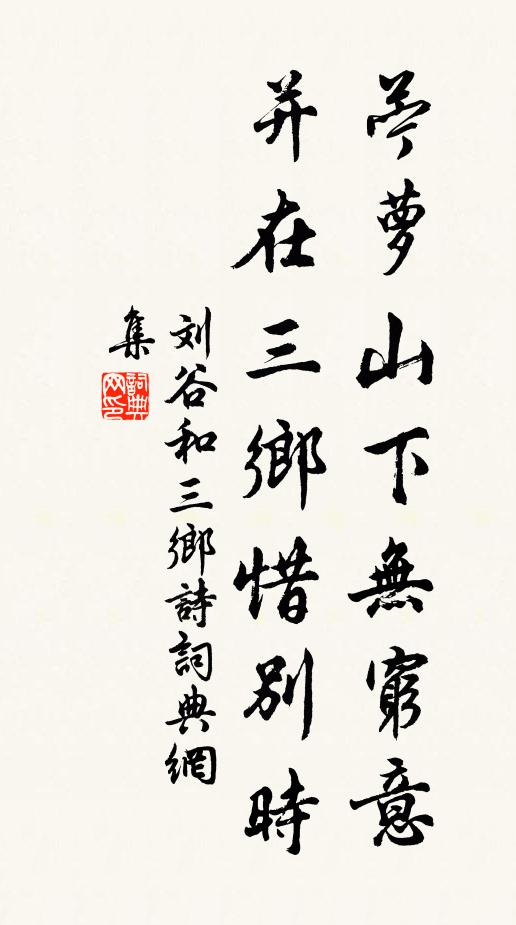 苧萝山下無窮意
并在三鄉惜別時
刘谷和三鄉詩詞典網
集
詞典网印